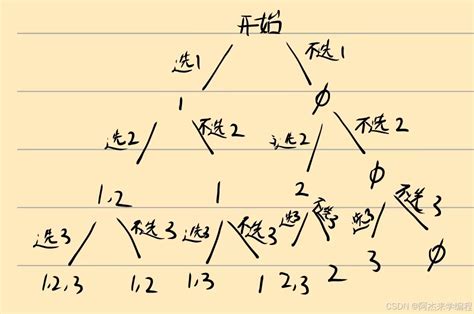 开始
选1 不选1
1 ∅
选2 不选2 选2 不选2
1,2 1 2 ∅
选3 不选3 选3 不选3 选3 不选3 选3 不选3
1,2,3 1,2 1,3 1 2,3 2 3 ∅
CSDN @阿杰来学编程